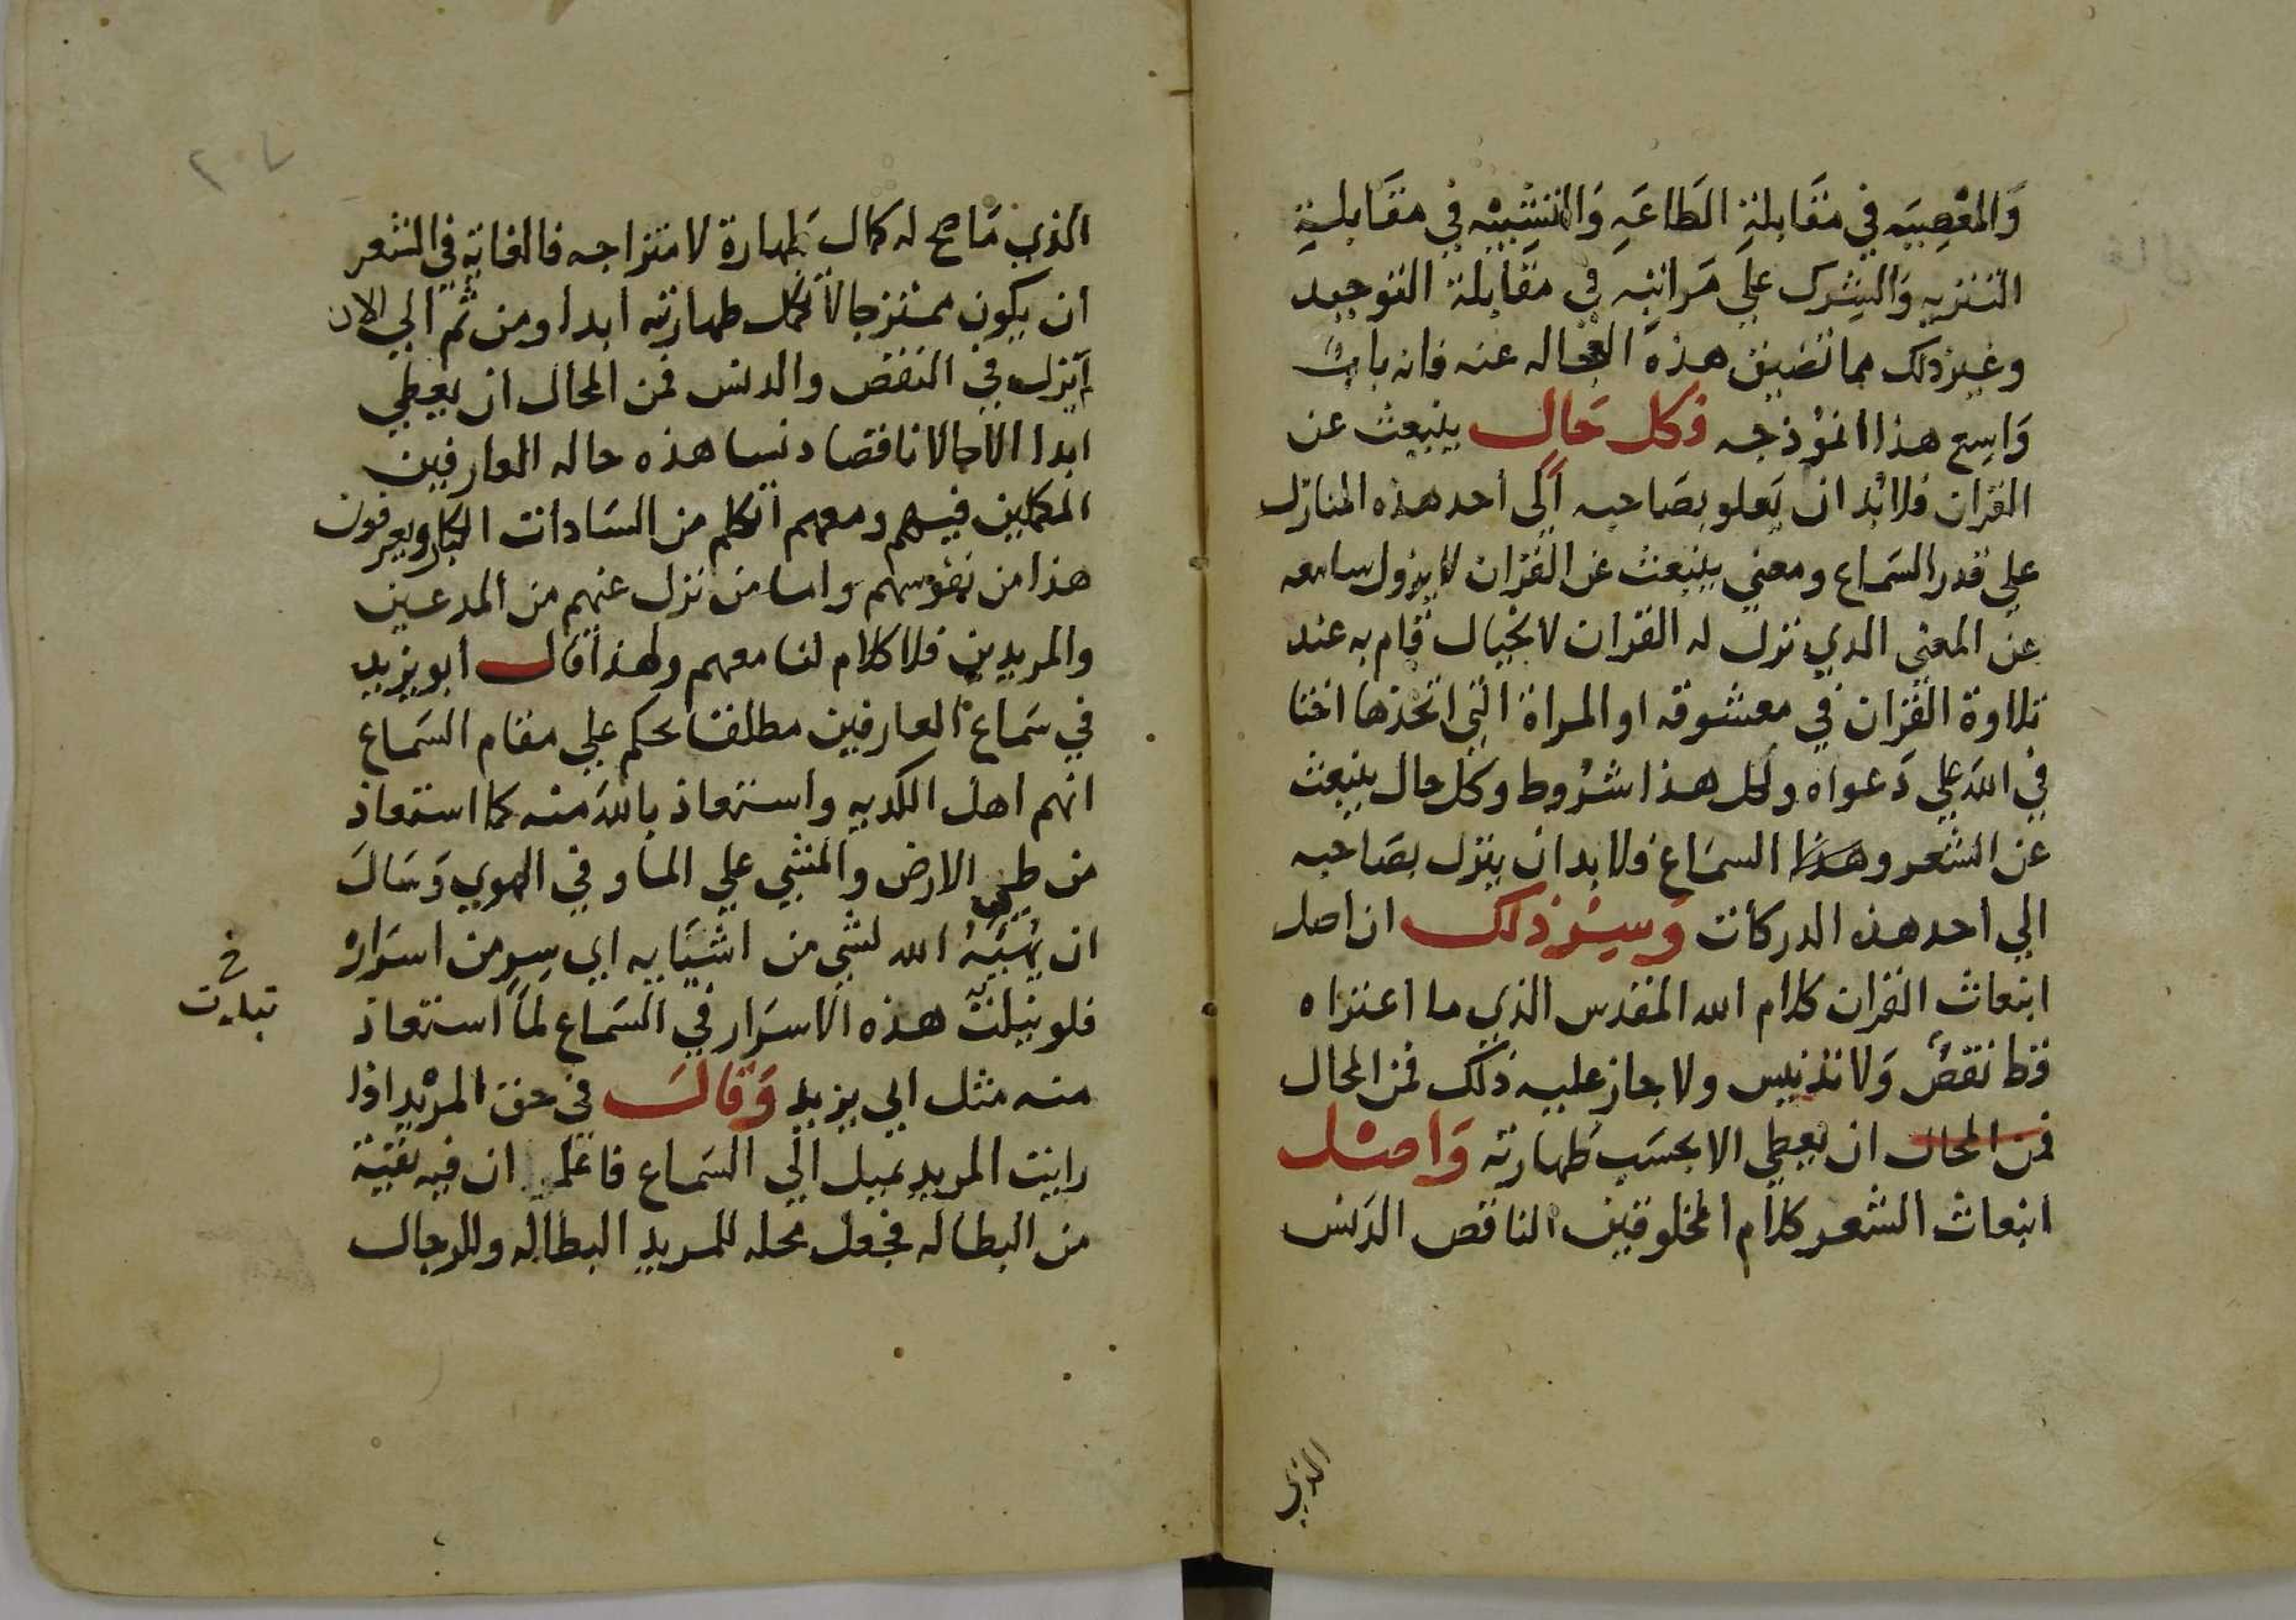 والمعصيه في مقابلة الطاعه والتشبيه في مقابلة
التنزيه والشرك علي مراتبه في مقابلة التوحيد
وغير ذلك مما تضيق هذه العجاله عنه فانه باب
واسع هذا انموذجه فكل حال ينبعث عن
القران فلا بد ان يعلو بصاحبه الي احد هذه المنازل
علي قدر السماع ومعني ينبعث عن القران لا يزول سامعه
عن المعني الذي نزل له القران لا بخيال قام به عند
تلاوة القران في معشوقه او المراة التي اتخذها اختا
في الله علي دعواه ولكل هذا شروط وكل حال ينبعث
عن الشعر وهذا السماع فلا بد ان ينزل بصاحبه
الي احد هذه الدركات وسر ذلك ان اصل
انبعاث القران كلام الله المقدس الذي ما اعتراه
قط نقص ولا تدنيس ولا جاز عليه ذلك فمن المحال
فمن المحال ان يعطي الا بحسب طهارته واصل
انبعاث الشعر كلام المخلوقين الناقص الدنس
الذي
٢٠٧
الذي ما صح له كمال طهارة لامتزاجه فالغاية في الشعر
ان يكون ممتزجا لا تكمل طهارته ابدا ومن ثم الي الان
لم يزل في النقص والدنس فمن المحال ان يعطي
ابدا الا حالا ناقصا دنسا هذه حاله العارفين
المكملين فيهم ومعهم اتكلم من السادات الكبار ويعرفون
هذا من نفوسهم واما من نزل عنهم من المدعين
والمريدين فلا كلام لنا معهم ولهذا قال ابو يزيد
في سماع العارفين مطلقا يحكم علي مقام السماع
انهم اهل الكديه واستعاذ بالله منه كما استعاذ
من طي الارض والمشي علي الما وفي الهوي وسال
ان يهيه الله لشي من اشيايه اي سر من اسراره
فلو نيلت هذه الاسرار في السماع لما استعاذ
خ
تبليت
منه مثل ابي يزيد وقال في حق المريد اذا
رايت المريد يميل الي السماع فاعلم ان فيه بقية
من البطاله فجعل محله للمريد البطاله وللرجال